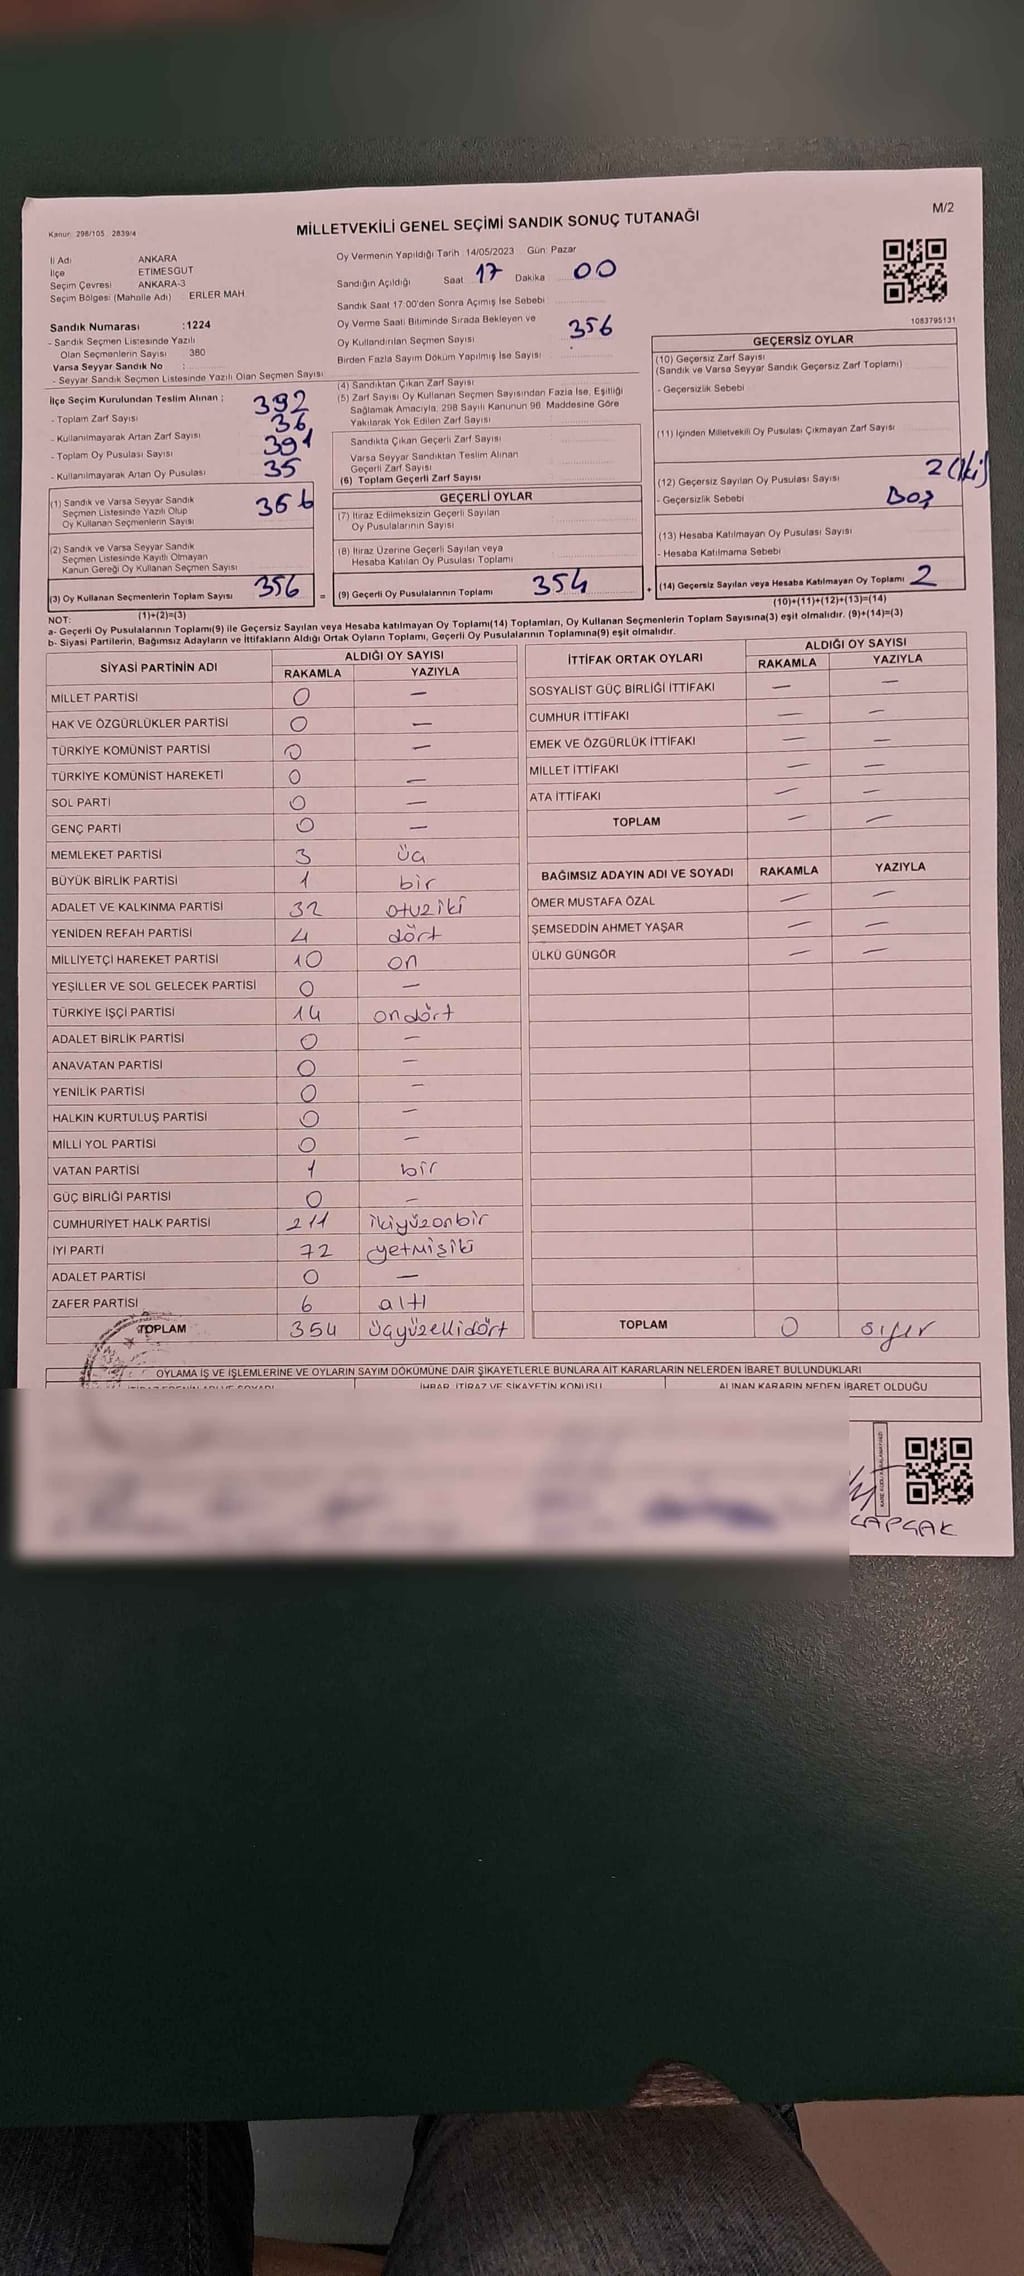 MİLLETVEKİLİ GENEL SEÇİMİ SANDIK SONUÇ TUTANAĞI
M/2
Kanun: 298/105 2839/4
İl Adı ANKARA
İlçe ETİMESGUT
Seçim Çevresi ANKARA-3
Seçim Bölgesi (Mahalle Adı) ERLER MAH
Sandık Numarası :1224
- Sandık Seçmen Listesinde Yazılı
Olan Seçmenlerin Sayısı 380
Varsa Seyyar Sandık No :
- Seyyar Sandık Seçmen Listesinde Yazılı Olan Seçmen Sayısı
Oy Vermenin Yapıldığı Tarih 14/05/2023 Gün: Pazar
Sandığın Açıldığı Saat 17 Dakika 00
Sandık Saat 17:00'den Sonra Açımış İse Sebebi
Oy Verme Saati Bitiminde Sırada Bekleyen ve
Oy Kullandırılan Seçmen Sayısı 356
Birden Fazla Sayım Döküm Yapılmış İse Sayısı
1083795131
İlçe Seçim Kurulundan Teslim Alınan ;
- Toplam Zarf Sayısı 392
- Kullanılmayarak Artan Zarf Sayısı 36
- Toplam Oy Pusulası Sayısı 391
- Kullanılmayarak Artan Oy Pusulası 35
(1) Sandık ve Varsa Seyyar Sandık
Seçmen Listesinde Yazılı Olup
Oy Kullanan Seçmenlerin Sayısı 356
(2) Sandık ve Varsa Seyyar Sandık
Seçmen Listesinde Kayıtlı Olmayan
Kanun Gereği Oy Kullanan Seçmen Sayısı
(3) Oy Kullanan Seçmenlerin Toplam Sayısı 356 =
(1)+(2)=(3)
(4) Sandıktan Çıkan Zarf Sayısı
(5) Zarf Sayısı Oy Kullanan Seçmen Sayısından Fazla İse, Eşitliği
Sağlamak Amacıyla, 298 Sayılı Kanunun 98. Maddesine Göre
Yakılarak Yok Edilen Zarf Sayısı
Sandıkta Çıkan Geçerli Zarf Sayısı
Varsa Seyyar Sandıktan Teslim Alınan
Geçerli Zarf Sayısı
(6) Toplam Geçerli Zarf Sayısı
GEÇERLİ OYLAR
(7) İtiraz Edilmeksizin Geçerli Sayılan
Oy Pusulalarının Sayısı
(8) İtiraz Üzerine Geçerli Sayılan veya
Hesaba Katılan Oy Pusulası Toplamı
(9) Geçerli Oy Pusulalarının Toplamı 354 +
GEÇERSİZ OYLAR
(10) Geçersiz Zarf Sayısı
(Sandık ve Varsa Seyyar Sandık Geçersiz Zarf Toplamı)
- Geçersizlik Sebebi
(11) İçinden Milletvekili Oy Pusulası Çıkmayan Zarf Sayısı
(12) Geçersiz Sayılan Oy Pusulası Sayısı 2 (iki)
- Geçersizlik Sebebi Boş
(13) Hesaba Katılmayan Oy Pusulası Sayısı
- Hesaba Katılmama Sebebi
(14) Geçersiz Sayılan veya Hesaba Katılmayan Oy Toplamı 2
(10)+(11)+(12)+(13)=(14)
NOT:
a- Geçerli Oy Pusulalarının Toplamı(9) ile Geçersiz Sayılan veya Hesaba katılmayan Oy Toplamı(14) Toplamları, Oy Kullanan Seçmenlerin Toplam Sayısına(3) eşit olmalıdır. (9)+(14)=(3)
b- Siyasi Partilerin, Bağımsız Adayların ve İttifakların Aldığı Ortak Oyların Toplamı, Geçerli Oy Pusulalarının Toplamına(9) eşit olmalıdır.
SİYASİ PARTİNİN ADI ALDIĞI OY SAYISI
RAKAMLA YAZIYLA
MİLLET PARTİSİ 0 —
HAK VE ÖZGÜRLÜKLER PARTİSİ 0 —
TÜRKİYE KOMÜNİST PARTİSİ 0 —
TÜRKİYE KOMÜNİST HAREKETİ 0 —
SOL PARTİ 0 —
GENÇ PARTİ 0 —
MEMLEKET PARTİSİ 3 üç
BÜYÜK BİRLİK PARTİSİ 1 bir
ADALET VE KALKINMA PARTİSİ 32 otuziki
YENİDEN REFAH PARTİSİ 4 dört
MİLLİYETÇİ HAREKET PARTİSİ 10 on
YEŞİLLER VE SOL GELECEK PARTİSİ 0 —
TÜRKİYE İŞÇİ PARTİSİ 14 ondört
ADALET BİRLİK PARTİSİ 0 —
ANAVATAN PARTİSİ 0 —
YENİLİK PARTİSİ 0 —
HALKIN KURTULUŞ PARTİSİ 0 —
MİLLİ YOL PARTİSİ 0 —
VATAN PARTİSİ 1 bir
GÜÇ BİRLİĞİ PARTİSİ 0 —
CUMHURİYET HALK PARTİSİ 211 ikiyüzonbir
İYİ PARTİ 72 yetmişiki
ADALET PARTİSİ 0 —
ZAFER PARTİSİ 6 altı
TOPLAM 354 üçyüzellidört
İTTİFAK ORTAK OYLARI ALDIĞI OY SAYISI
RAKAMLA YAZIYLA
SOSYALİST GÜÇ BİRLİĞİ İTTİFAKI — —
CUMHUR İTTİFAKI — —
EMEK VE ÖZGÜRLÜK İTTİFAKI — —
MİLLET İTTİFAKI — —
ATA İTTİFAKI — —
TOPLAM — —
BAĞIMSIZ ADAYIN ADI VE SOYADI RAKAMLA YAZIYLA
ÖMER MUSTAFA ÖZAL — —
ŞEMSEDDİN AHMET YAŞAR — —
ÜLKÜ GÜNGÖR — —
TOPLAM 0 sıfır
OYLAMA İŞ VE İŞLEMLERİNE VE OYLARIN SAYIM DÖKÜMÜNE DAİR ŞİKAYETLERLE BUNLARA AİT KARARLARIN NELERDEN İBARET BULUNDUKLARI
İHBAR, İTİRAZ VE ŞİKAYETİN KONUSU
ALINAN KARARIN NEDEN İBARET OLDUĞU